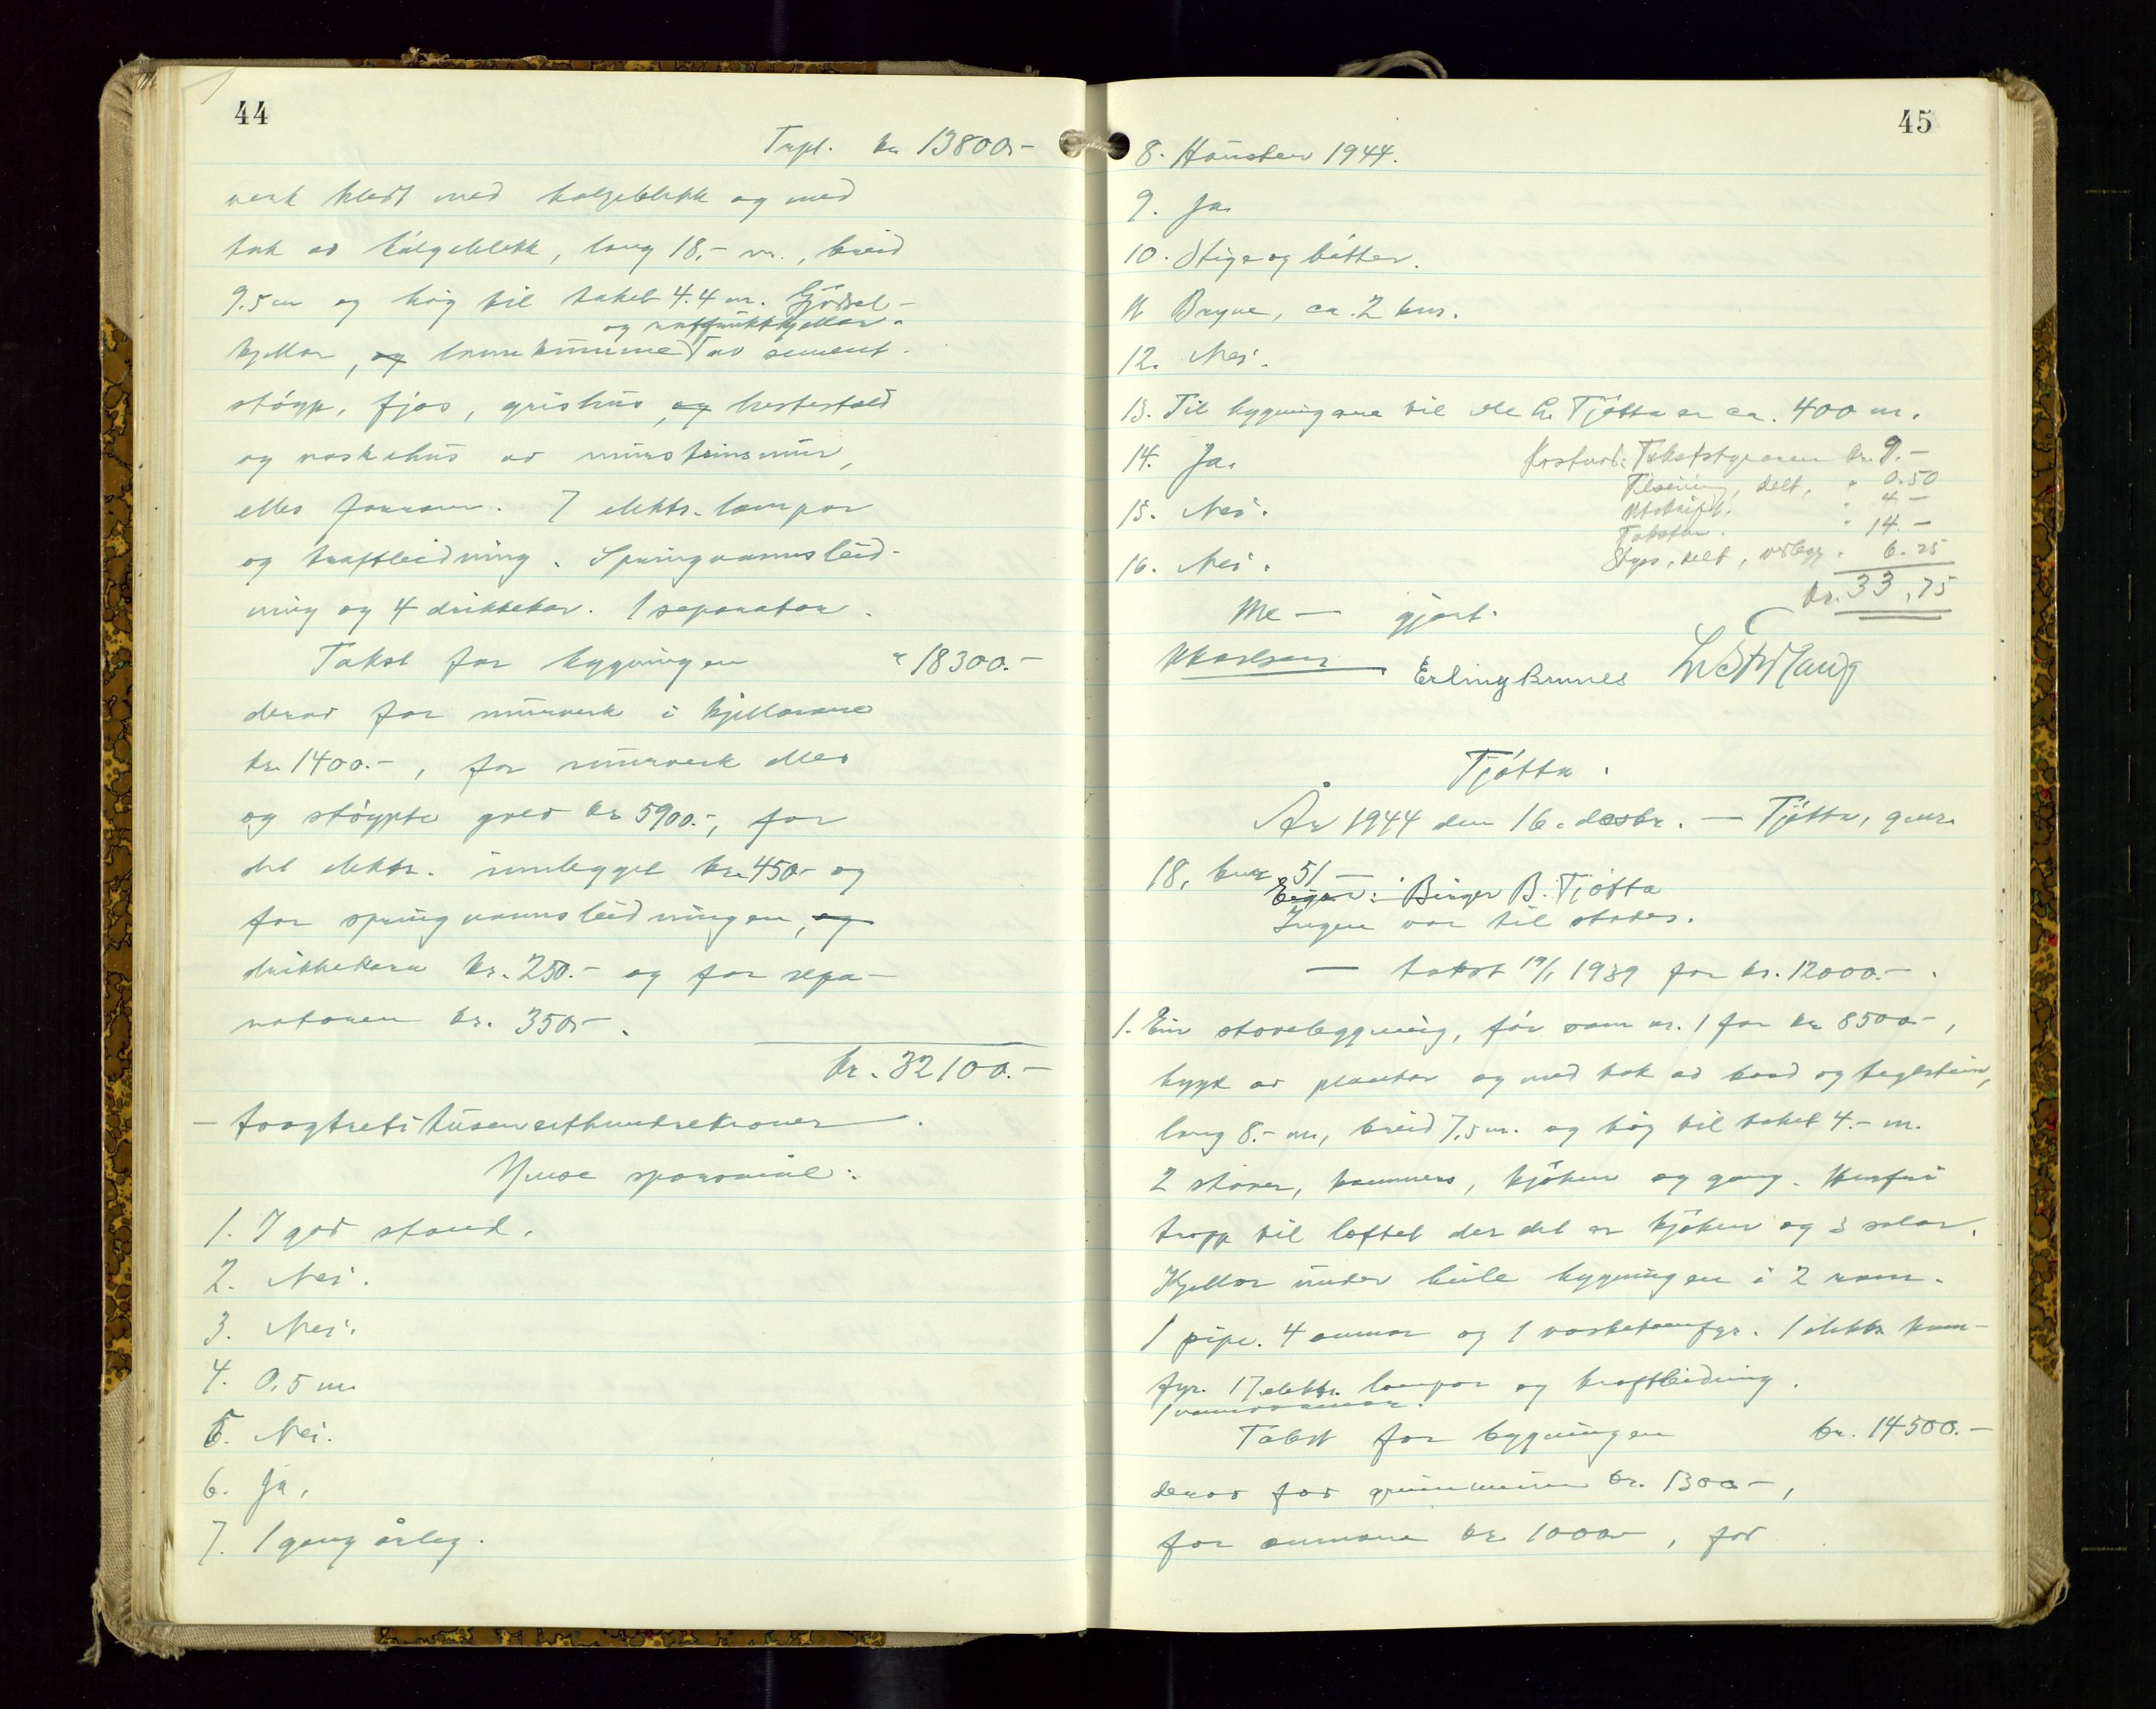 44
Trpl. kr 13800.-
verk kledt med bølgeblikk og med
tak av bølgeblikk, lang 18,- m., breid
9.5 m og høg til taket 4.4 m. Gjødsel-
og saftfrukkjellar.
kjellar, og lannkumme av sement-
støyp, fjos, grishus, og hestestald
og vaskehus av mursteinsmur,
elles fanrom. 7 elektr. lampor
og kraftleidning. Springvannsleid-
ning og 4 drikkekar. 1 separator.
Takst for bygningen " 18300.-
derav for murverk i kjellarane
kr. 1400.-, for murverk elles
og støypte golv kr 5900.-, for
det elektr. innlegget kr. 450.- og
for springvannsleidningen, og
drikkekara kr. 250.- og for sepa-
ratoren kr. 350.-.
kr. 32100.-
- toogtretitusenetthundrekroner.
Ymse sporsmål:
1. I god stand.
2. Nei.
3. Nei.
4. 0.5 m.
5. Nei.
6. Ja.
7. 1 gang årleg.
45
8. Hausten 1944.
9. Ja.
10. Stige og bøtter.
11 Bryne, ca. 2 km.
12. Nei.
13. Til bygningane til Ole C. Tjøtta er ca. 400 m.
14. Ja. Kostnad: Takststyraren kr. 9.-
Tilseining, delt, " 0.50
15. Nei. Utskrift. " 4.-
Takstm. " 14.-
16. Nei. Skyss, delt, vedlegg " 6.25
kr. 33,75
Me — gjort.
Erling Brunes
Tjøtta.
År 1944 den 16. desbr. — Tjøtta, g.nr.
18, bnr 51 —
Eigar: Birger B. Tjøtta
Ingen var til stades.
— takst 19/1 1939 for kr. 12000.-.
1. Ein stovebygning, før som nr. 1 for kr 8500.-,
bygt av plankar og med tak av bord og teglstein,
lang 8.- m, breid 7,5 m. og høg til taket 4.- m.
2 stover, kammers, kjøken og gang. Herfrå
tropp til loftet der det er kjøken og 3 salar.
Kjellar under heile bygningen i 2 rom.
1 pipe. 4 omnar og 1 vaskekomfyr. 1 elektr kom-
fyr. 17 elektr. lampor og kraftleidning.
1 vannomnar.
Takst for bygningen kr. 14500.-
derav for grunnmuren kr. 1300-,
for omnane kr 1000.-, for